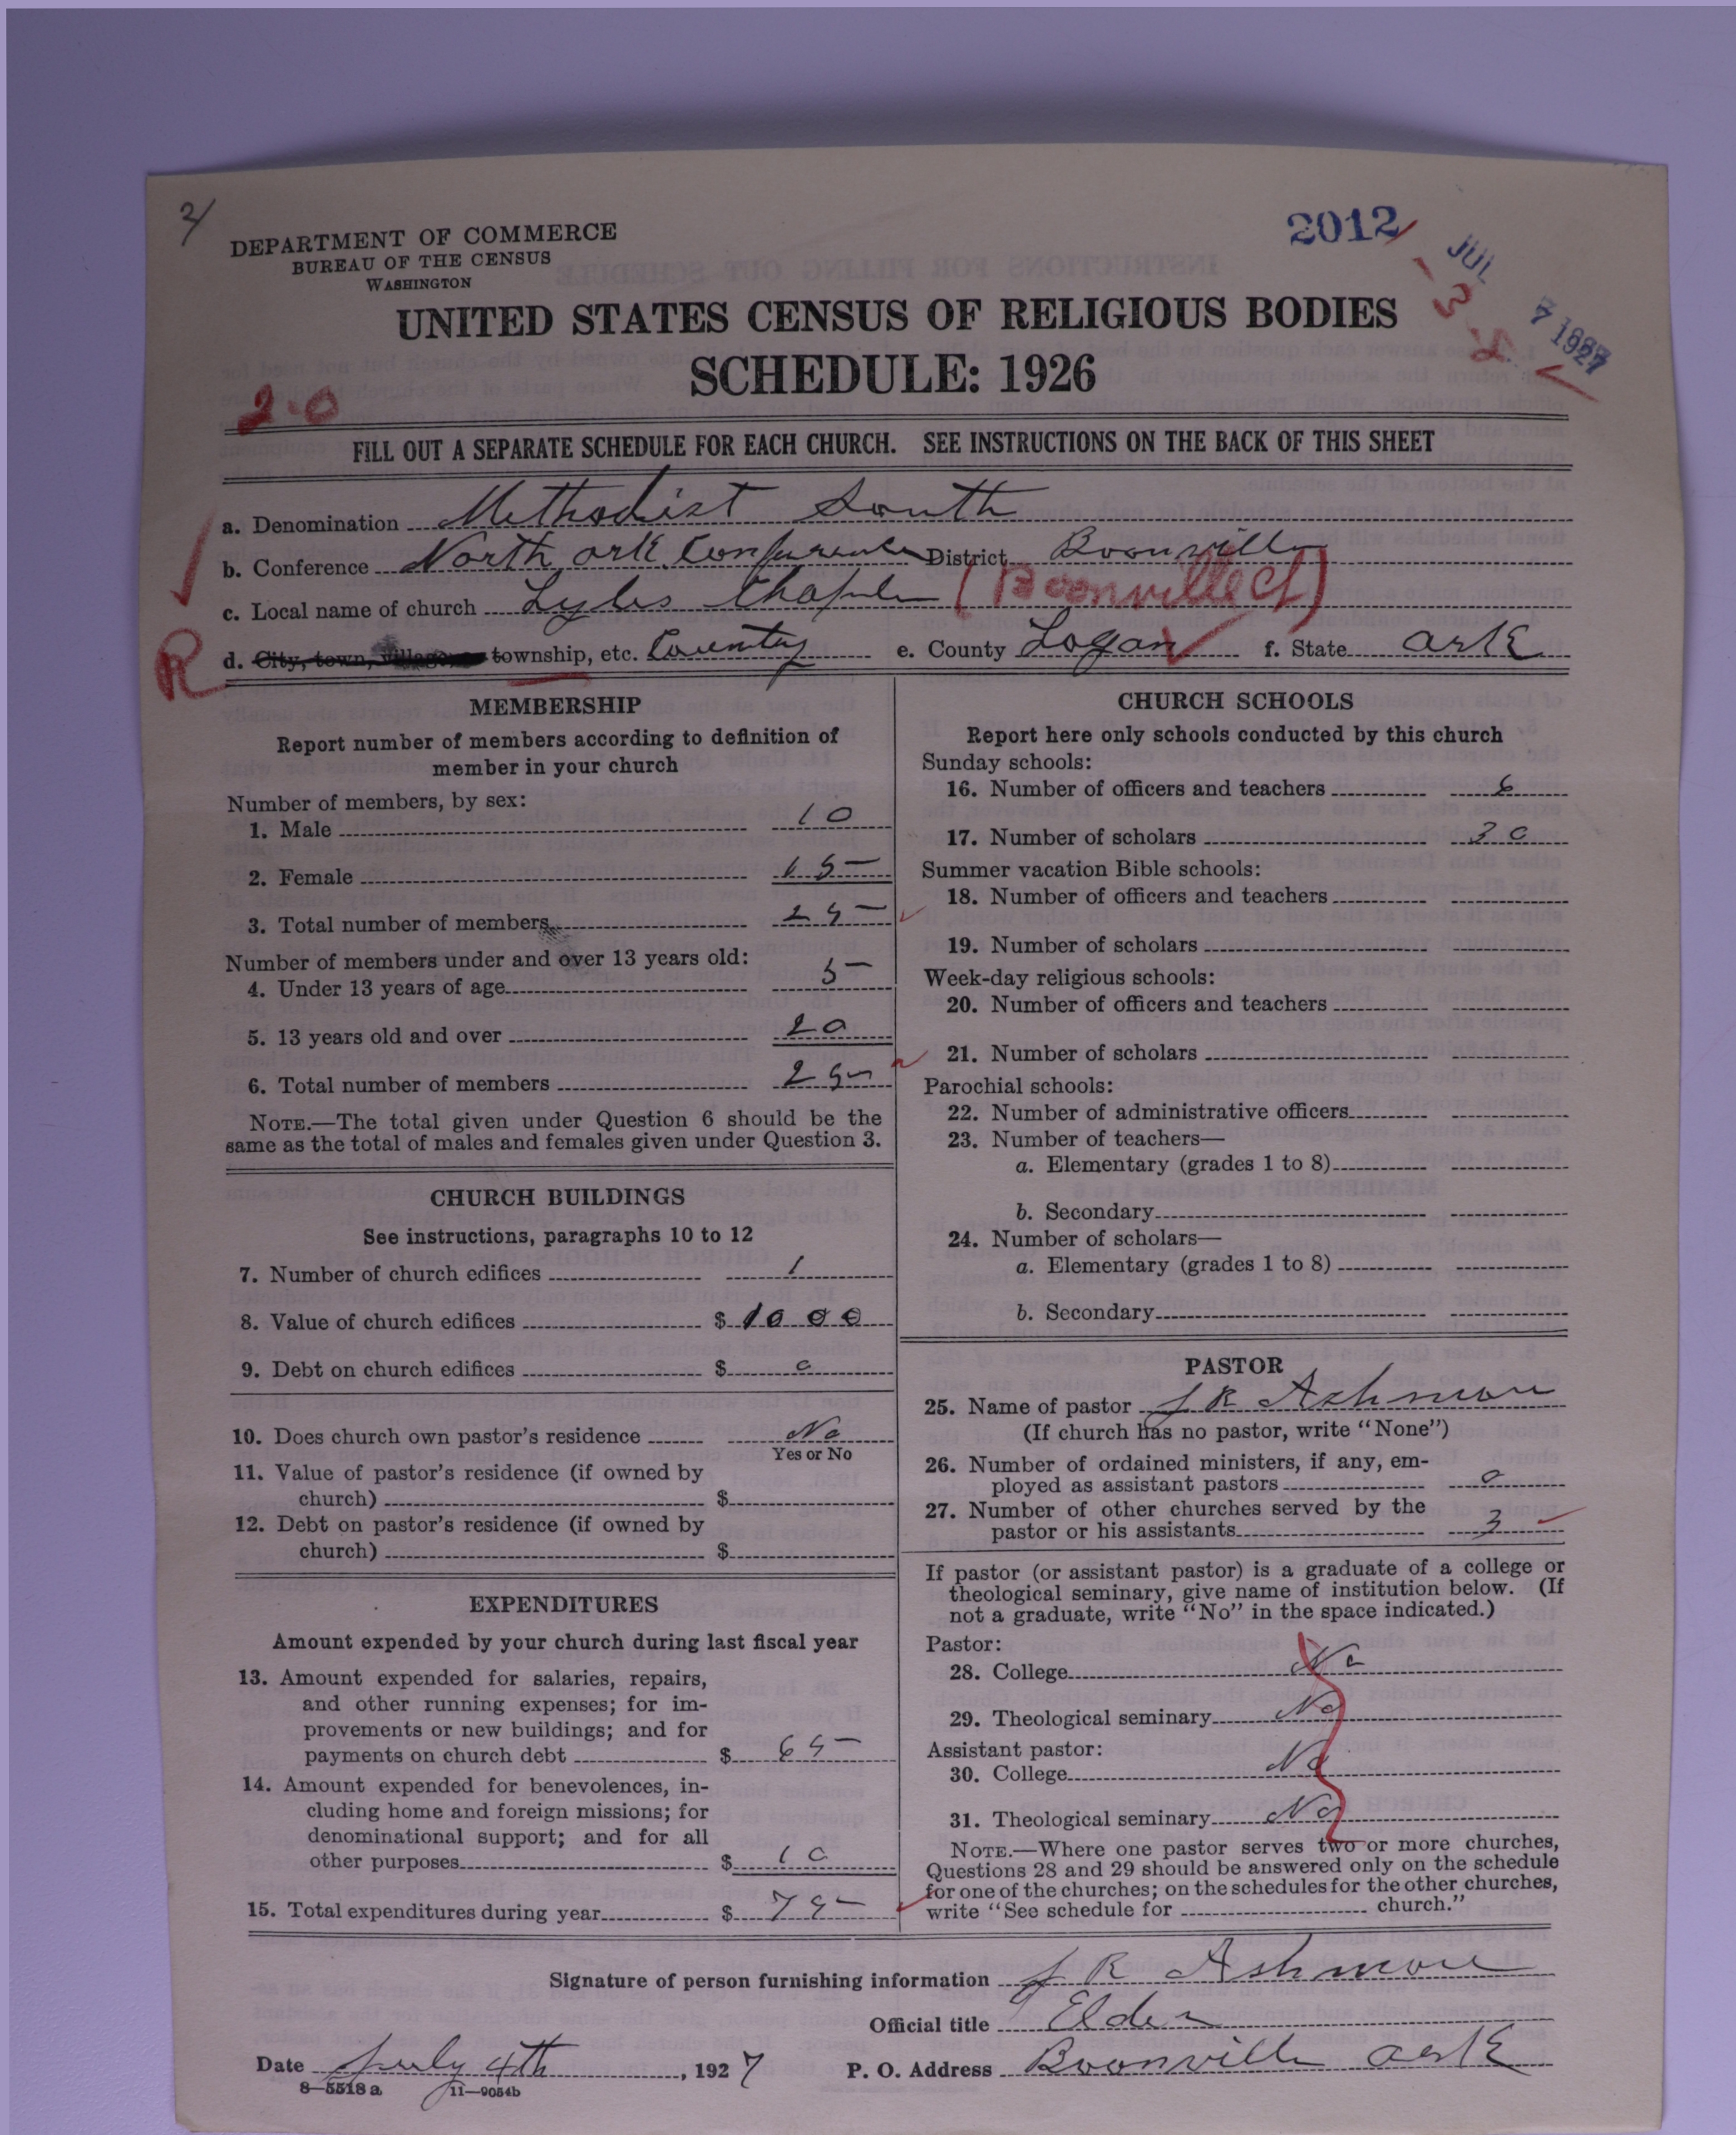 2/
DEPARTMENT OF COMMERCE
BUREAU OF THE CENSUS
WASHINGTON
2012
JUL 7 1927
UNITED STATES CENSUS OF RELIGIOUS BODIES
SCHEDULE: 1926
2-0
FILL OUT A SEPARATE SCHEDULE FOR EACH CHURCH. SEE INSTRUCTIONS ON THE BACK OF THIS SHEET
a. Denomination Methodist South
b. Conference North Ark. Conference District Boonville
c. Local name of church Lyles Chapel (Boonville Ct)
R d. City, town, village, or township, etc. Country e. County Logan f. State Ark
MEMBERSHIP
Report number of members according to definition of
member in your church
Number of members, by sex:
1. Male 10
2. Female 15
3. Total number of members 25
Number of members under and over 13 years old:
4. Under 13 years of age 5
5. 13 years old and over 20
6. Total number of members 25
NOTE.—The total given under Question 6 should be the
same as the total of males and females given under Question 3.
CHURCH BUILDINGS
See instructions, paragraphs 10 to 12
7. Number of church edifices 1
8. Value of church edifices $ 1000
9. Debt on church edifices $ 0
10. Does church own pastor's residence No
Yes or No
11. Value of pastor's residence (if owned by
church) $
12. Debt on pastor's residence (if owned by
church) $
EXPENDITURES
Amount expended by your church during last fiscal year
13. Amount expended for salaries, repairs,
and other running expenses; for im-
provements or new buildings; and for
payments on church debt $ 65
14. Amount expended for benevolences, in-
cluding home and foreign missions; for
denominational support; and for all
other purposes $ 10
15. Total expenditures during year $ 75
CHURCH SCHOOLS
Report here only schools conducted by this church
Sunday schools:
16. Number of officers and teachers 6
17. Number of scholars 30
Summer vacation Bible schools:
18. Number of officers and teachers
19. Number of scholars
Week-day religious schools:
20. Number of officers and teachers
21. Number of scholars
Parochial schools:
22. Number of administrative officers
23. Number of teachers—
a. Elementary (grades 1 to 8)
b. Secondary
24. Number of scholars—
a. Elementary (grades 1 to 8)
b. Secondary
PASTOR
25. Name of pastor J R Ashmore
(If church has no pastor, write "None")
26. Number of ordained ministers, if any, em-
ployed as assistant pastors 0
27. Number of other churches served by the
pastor or his assistants 3
If pastor (or assistant pastor) is a graduate of a college or
theological seminary, give name of institution below. (If
not a graduate, write "No" in the space indicated.)
Pastor:
28. College No
29. Theological seminary No
Assistant pastor:
30. College No
31. Theological seminary No
NOTE.—Where one pastor serves two or more churches,
Questions 28 and 29 should be answered only on the schedule
for one of the churches; on the schedules for the other churches,
write "See schedule for church."
Signature of person furnishing information J R Ashmore
Official title Elder
Date July 4th, 1927 P. O. Address Boonville Ark
8—5518 a 11—9054b